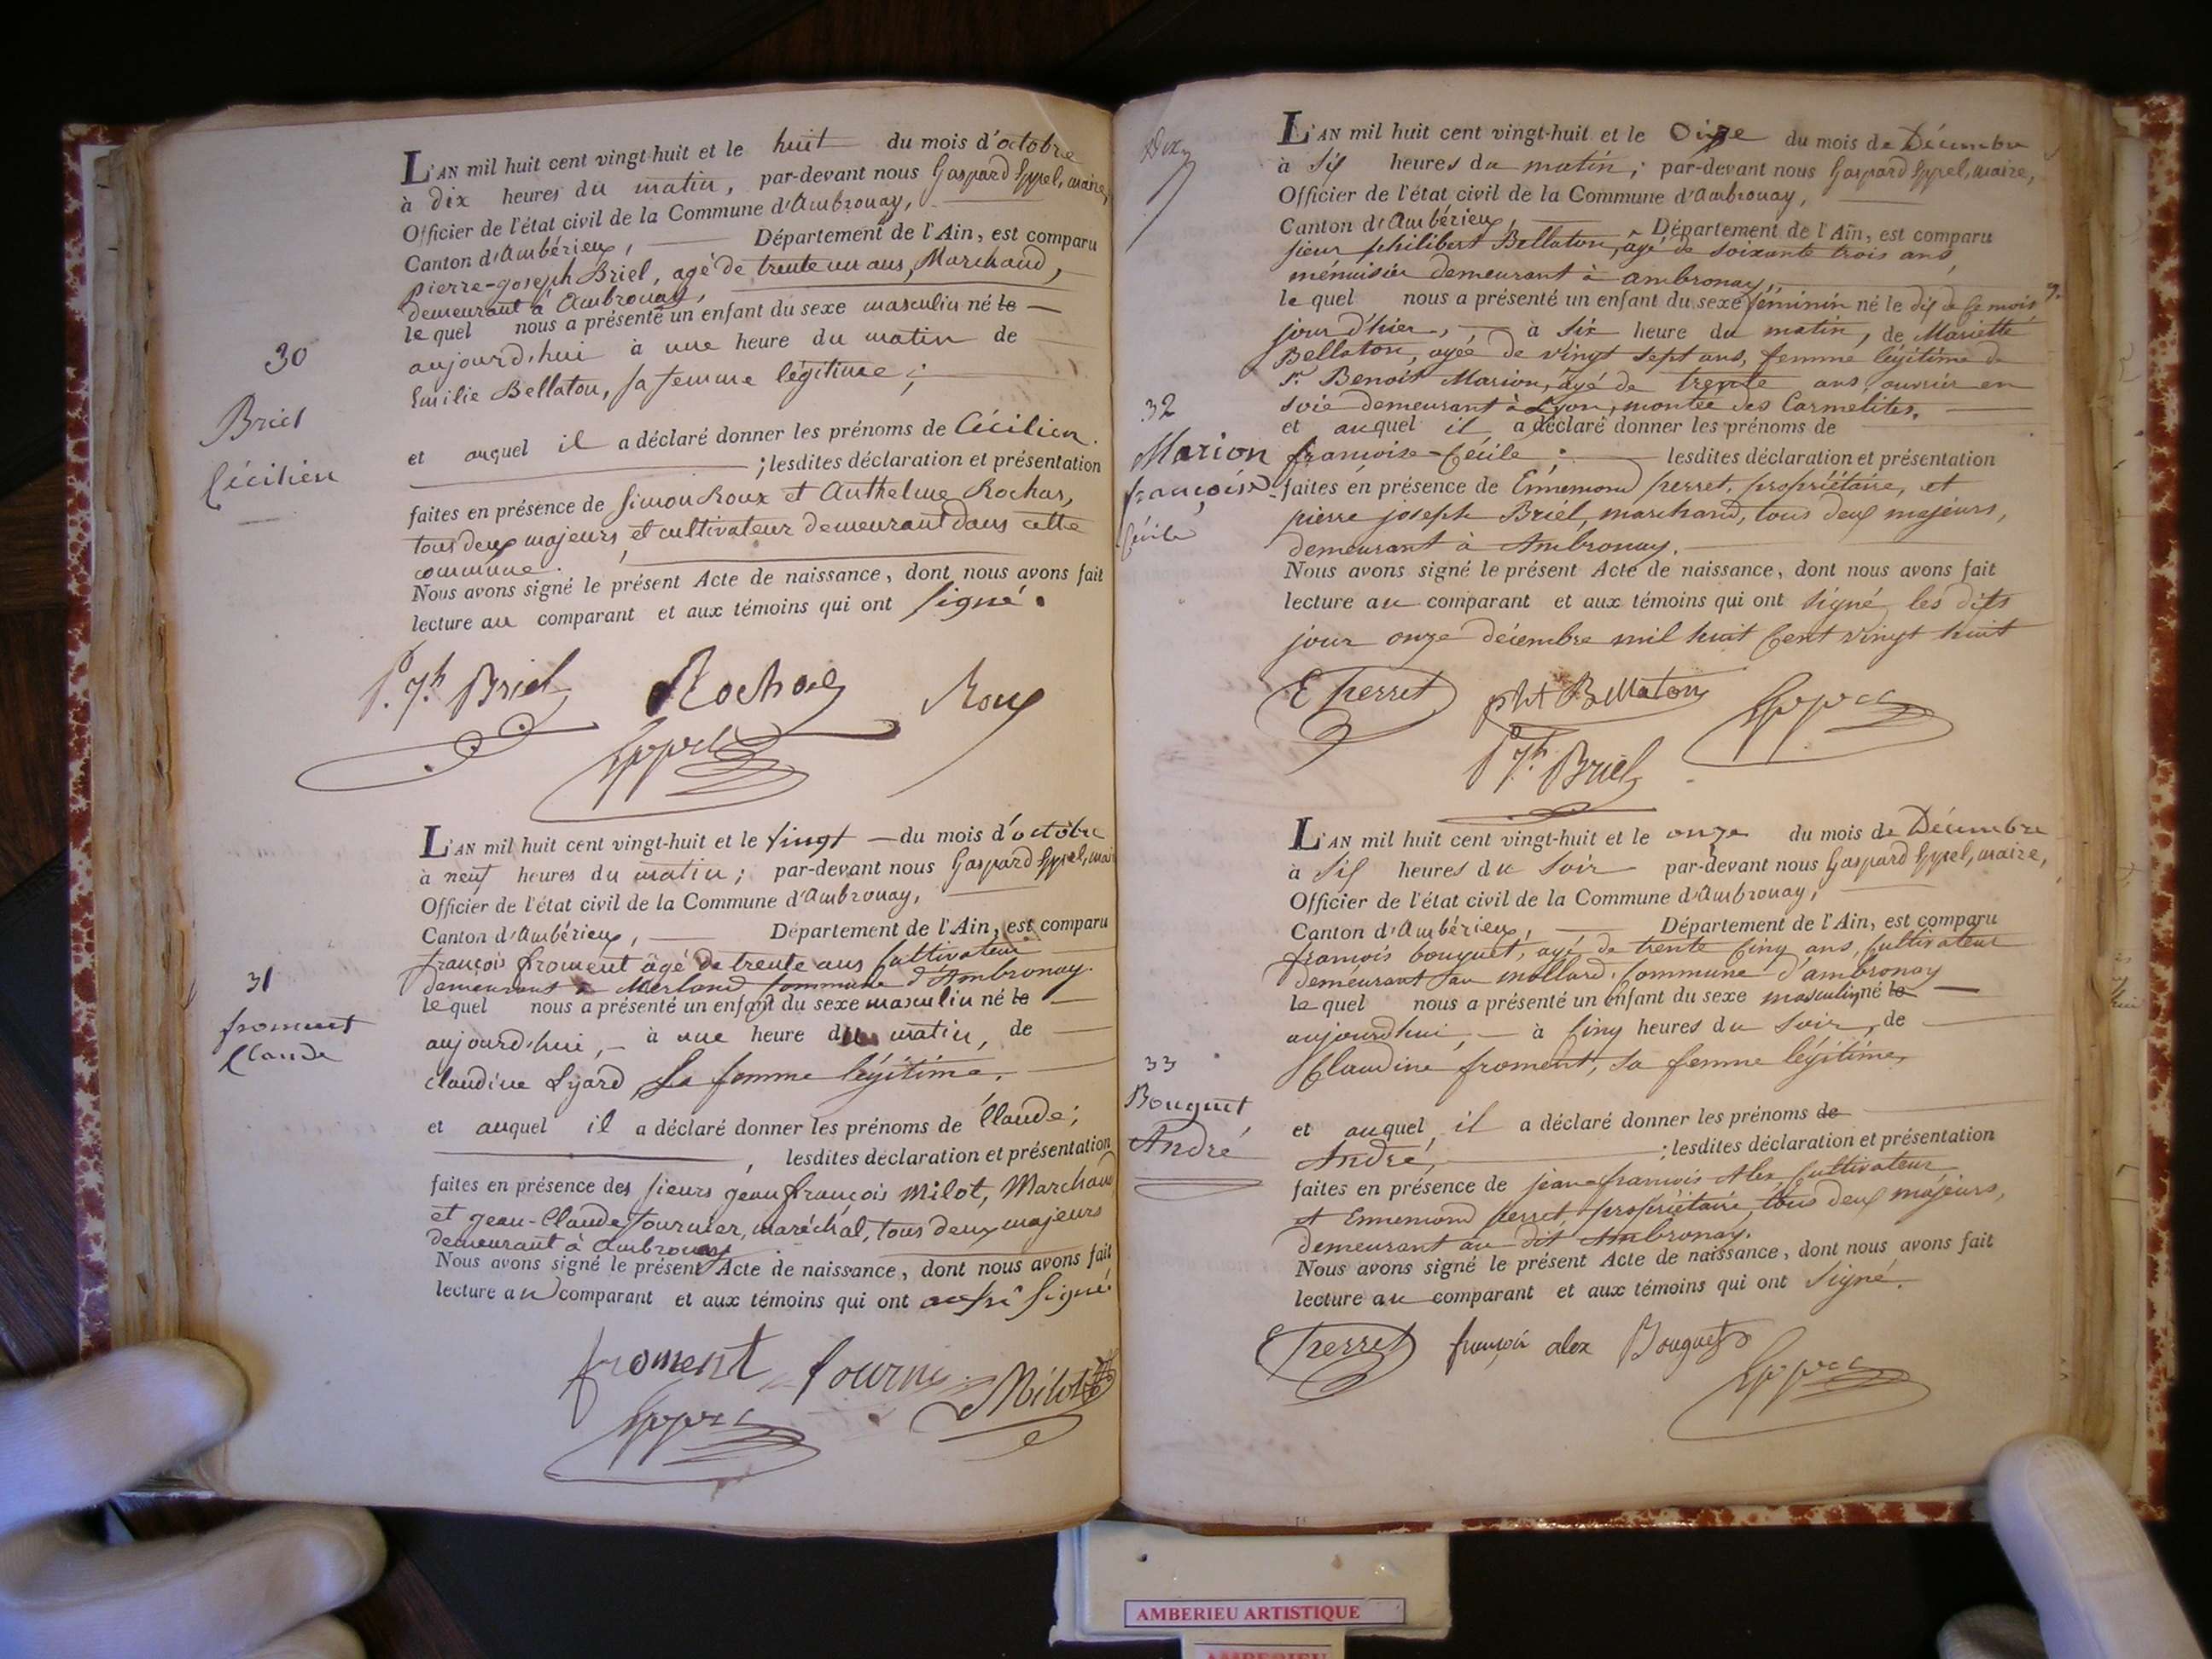 L'AN mil huit cent vingt-huit et le huit du mois d'octobre
à dix heures du matin, par-devant nous Gaspard Eppel, maire,
Officier de l'état civil de la Commune d'Ambronay,
Canton d'Ambérieux, Département de l'Ain, est comparu
pierre-joseph Briel, agé de trente un ans, Marchand,
demeurant à Ambronay,
le quel nous a présenté un enfant du sexe masculin né le
aujourd'hui à une heure du matin de
Emilie Bellaton, sa femme légitime;
30
Briel
Cécilien
et auquel il a déclaré donner les prénoms de Cécilien.
; lesdites déclaration et présentation
faites en présence de Simon Roux et Anthelme Rochas,
tous deux majeurs, et cultivateur demeurant dans cette
commune.
Nous avons signé le présent Acte de naissance, dont nous avons fait
lecture au comparant et aux témoins qui ont signé.
P. Jh. Briel Rochas Roux
Eppel
L'AN mil huit cent vingt-huit et le vingt du mois d'octobre
à neuf heures du matin; par-devant nous Gaspard Eppel, mai
Officier de l'état civil de la Commune d'Ambronay,
Canton d'Ambérieux, Département de l'Ain, est comparu
françois froment âgé de trente ans Cultivateur
demeurant à Merland Commune d'Ambronay.
le quel nous a présenté un enfant du sexe masculin né le
aujourd'hui, à une heure du matin, de
claudine Lyard sa femme légitime.
31
froment
Claude
et auquel il a déclaré donner les prénoms de Claude;
, lesdites déclaration et présentation
faites en présence des sieurs jean françois Milot, Marchand
et jean-Claude fournier, maréchal, tous deux majeurs
demeurant à Ambronay
Nous avons signé le présent Acte de naissance, dont nous avons fait
lecture au comparant et aux témoins qui ont aussi signé
froment fournier Milot
Eppel
Dix
L'AN mil huit cent vingt-huit et le Onze du mois de Décembre
à Six heures du matin; par-devant nous Gaspard Eppel, maire,
Officier de l'état civil de la Commune d'Ambronay,
Canton d'Ambérieux, Département de l'Ain, est comparu
sieur philibert Bellaton, âgé de soixante trois ans,
ménuisier demeurant à Ambronay,
le quel nous a présenté un enfant du sexe féminin né le dix de ce mois
jour d'hier, à six heure du matin, de Mariette
Bellaton, agée de vingt sept ans, femme légitime de
Sr. Benoit Marion, âgé de trente ans, ouvrier en
soie demeurant à Lyon, montée des Carmélites.
32
Marion
françoise
Cécile
et auquel il a déclaré donner les prénoms de
françoise-Cécile; lesdites déclaration et présentation
faites en présence de Ennemond perret, propriétaire, et
pierre joseph Briel, marchand, tous deux majeurs,
demeurant à Ambronay.
Nous avons signé le présent Acte de naissance, dont nous avons fait
lecture au comparant et aux témoins qui ont signé les dits
jour onze décembre mil huit Cent vingt huit
E Perret pht Bellaton Eppel
P. Jh. Briel
L'AN mil huit cent vingt-huit et le onze du mois de Décembre
à Six heures du soir par-devant nous Gaspard Eppel, maire,
Officier de l'état civil de la Commune d'Ambronay,
Canton d'Ambérieux, Département de l'Ain, est comparu
françois bouquet, agé de trente Cinq ans, Cultivateur
demeurant au mollard, Commune d'ambronay
le quel nous a présenté un Enfant du sexe masculin né le
aujourd'hui, à Cinq heures du soir, de
Claudine froment, sa femme légitime,
33
Bouquet
André
et auquel il a déclaré donner les prénoms de
André, ; lesdites déclaration et présentation
faites en présence de jean françois Alex, Cultivateur
et Ennemond perret, propriétaire, tous deux majeurs,
demeurant au dit Ambronay.
Nous avons signé le présent Acte de naissance, dont nous avons fait
lecture au comparant et aux témoins qui ont signé.
E Perret françois alex Bouquet
Eppel
AMBERIEU ARTISTIQUE
AMBERIEU